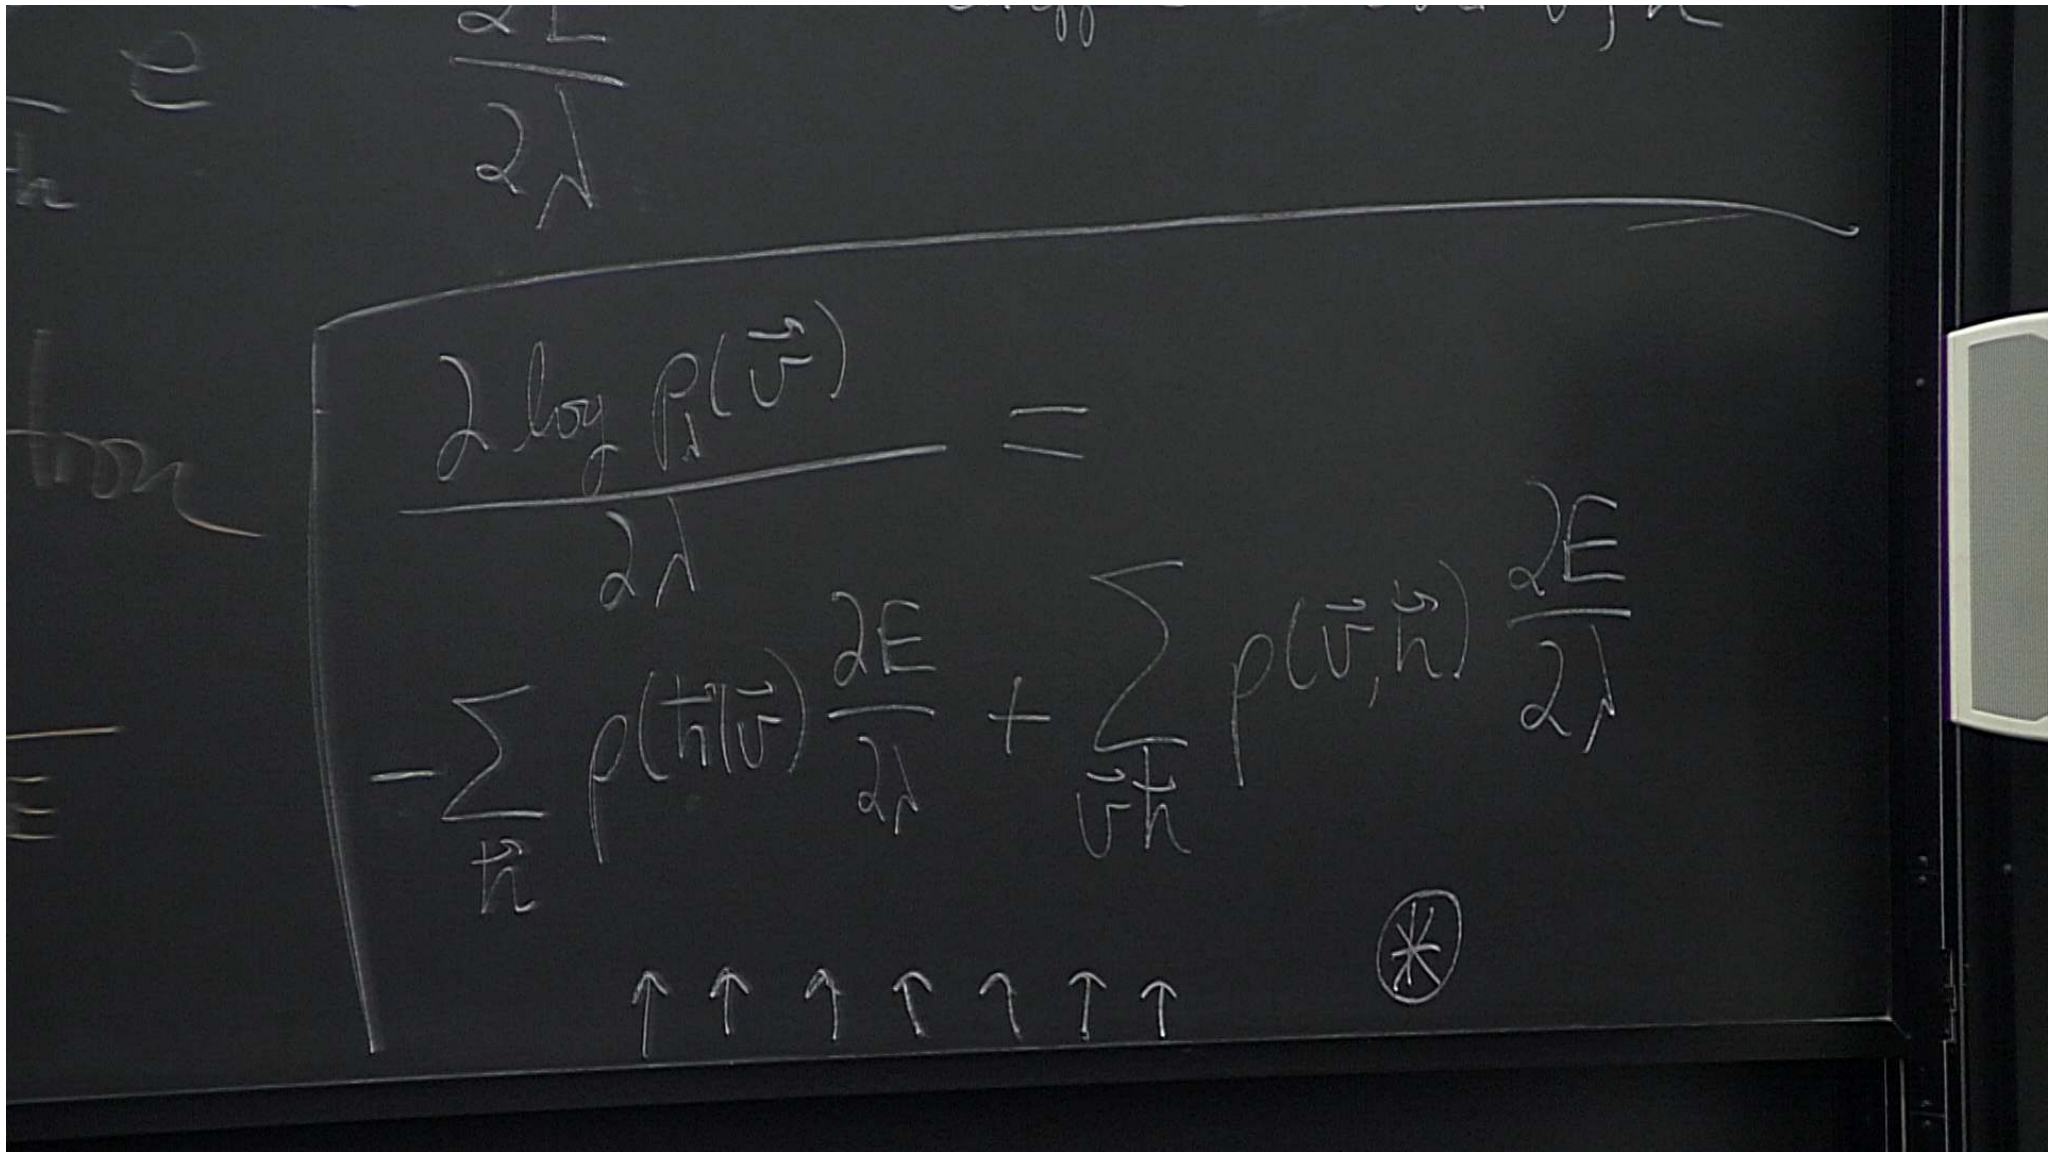 e ∂E
∂λ
h
∂ log p_λ(v⃗) =
∂λ
-∑_h⃗ p(h⃗|v⃗) ∂E/∂λ + ∑_v⃗h⃗ p(v⃗,h⃗) ∂E/∂λ
↑ ↑ ↑ ↑ ↑ ↑ ↑ ⊛